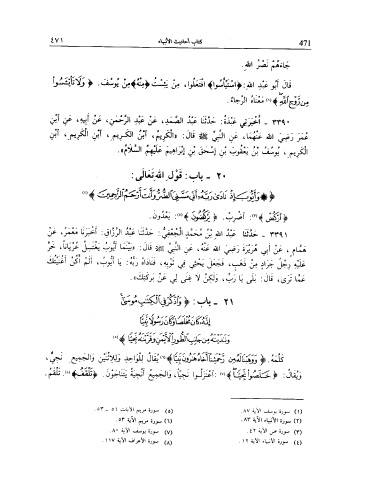 ٤٧١ كتاب أحاديث الأنبياء 471
جَاءَهُمْ نَصْرُ اللهِ.
قَالَ أَبُو عَبْدِ اللهِ: ﴿اسْتَيْأَسُوا﴾ افْتَعَلُوا، مِنْ يَئِسْتُ ﴿مِنْهُ﴾ مِنْ يُوسُفَ. ﴿وَلَا تَيْأَسُوا
مِن رَّوْحِ اللَّهِ﴾(١) مَعْنَاهُ الرَّجَاءُ.
٣٣٩٠ - أَخْبَرَنِي عَبْدَةُ: حَدَّثَنَا عَبْدُ الصَّمَدِ، عَنْ عَبْدِ الرَّحْمَنِ، عَنْ أَبِيهِ، عَنِ ابْنِ
عُمَرَ رَضِيَ اللهُ عَنْهُمَا، عَنِ النَّبِيِّ ﷺ قَالَ: «الْكَرِيمُ، ابْنُ الْكَرِيمِ، ابْنِ الْكَرِيمِ، ابْنِ
الْكَرِيمِ، يُوسُفُ بْنُ يَعْقُوبَ بْنِ إِسْحَقَ بْنِ إِبْرَاهِيمَ عَلَيْهِمُ السَّلَامُ».
٢٠ - باب: قَوْلِ اللهِ تَعَالَى:
﴿۞ وَأَيُّوبَ إِذْ نَادَىٰ رَبَّهُ أَنِّي مَسَّنِيَ الضُّرُّ وَأَنتَ أَرْحَمُ الرَّاحِمِينَ﴾(٢)
﴿ارْكُضْ﴾(٣). اضْرِبْ. ﴿يَرْكُضُونَ﴾(٤): يَعْدُونَ.
٣٣٩١ - حَدَّثَنَا عَبْدُ اللهِ بْنُ مُحَمَّدٍ الْجُعْفِيُّ: حَدَّثَنَا عَبْدُ الرَّزَّاقِ: أَخْبَرَنَا مَعْمَرٌ، عَنْ
هَمَّامٍ، عَنْ أَبِي هُرَيْرَةَ رَضِيَ اللهُ عَنْهُ، عَنِ النَّبِيِّ ﷺ قَالَ: «بَيْنَمَا أَيُّوبُ يَغْتَسِلُ عُرْيَانًا، خَرَّ
عَلَيْهِ رِجْلُ جَرَادٍ مِنْ ذَهَبٍ، فَجَعَلَ يَحْثِي فِي ثَوْبِهِ، فَنَادَاهُ رَبُّهُ: يَا أَيُّوبُ، أَلَمْ أَكُنْ أَغْنَيْتُكَ
عَمَّا تَرَى، قَالَ: بَلَى يَا رَبِّ، وَلَكِنْ لَا غِنَى لِي عَنْ بَرَكَتِكَ».
٢١ - باب: ﴿وَاذْكُرْ فِي الْكِتَابِ مُوسَىٰ
إِنَّهُ كَانَ مُخْلَصًا وَكَانَ رَسُولًا نَّبِيًّا
وَنَادَيْنَاهُ مِن جَانِبِ الطُّورِ الْأَيْمَنِ وَقَرَّبْنَاهُ نَجِيًّا﴾(٥)
كَلَّمَهُ. ﴿وَوَهَبْنَا لَهُ مِن رَّحْمَتِنَا أَخَاهُ هَارُونَ نَبِيًّا﴾(٦) يُقَالُ لِلْوَاحِدِ وَلِلاثْنَيْنِ وَالْجَمِيعِ. نَجِيٌّ،
وَيُقَالُ: ﴿خَلَصُوا نَجِيًّا﴾(٧): اعْتَزَلُوا نَجِيًّا، وَالْجَمِيعُ أَنْجِيَةٌ يَتَنَاجَوْنَ. ﴿تَلْقَفُ﴾(٨) تَلَقَّمُ.
(١) سورة يوسف الآية ٨٧.
(٢) سورة الأنبياء الآية ٨٣.
(٣) سورة ص الآية ٤٢.
(٤) سورة الأنبياء الآية ١٢.
(٥) سورة مريم الآيات ٥١ - ٥٣.
(٦) سورة مريم الآية ٥٣.
(٧) سورة يوسف الآية ٨٠.
(٨) سورة الأعراف الآية ١١٧.